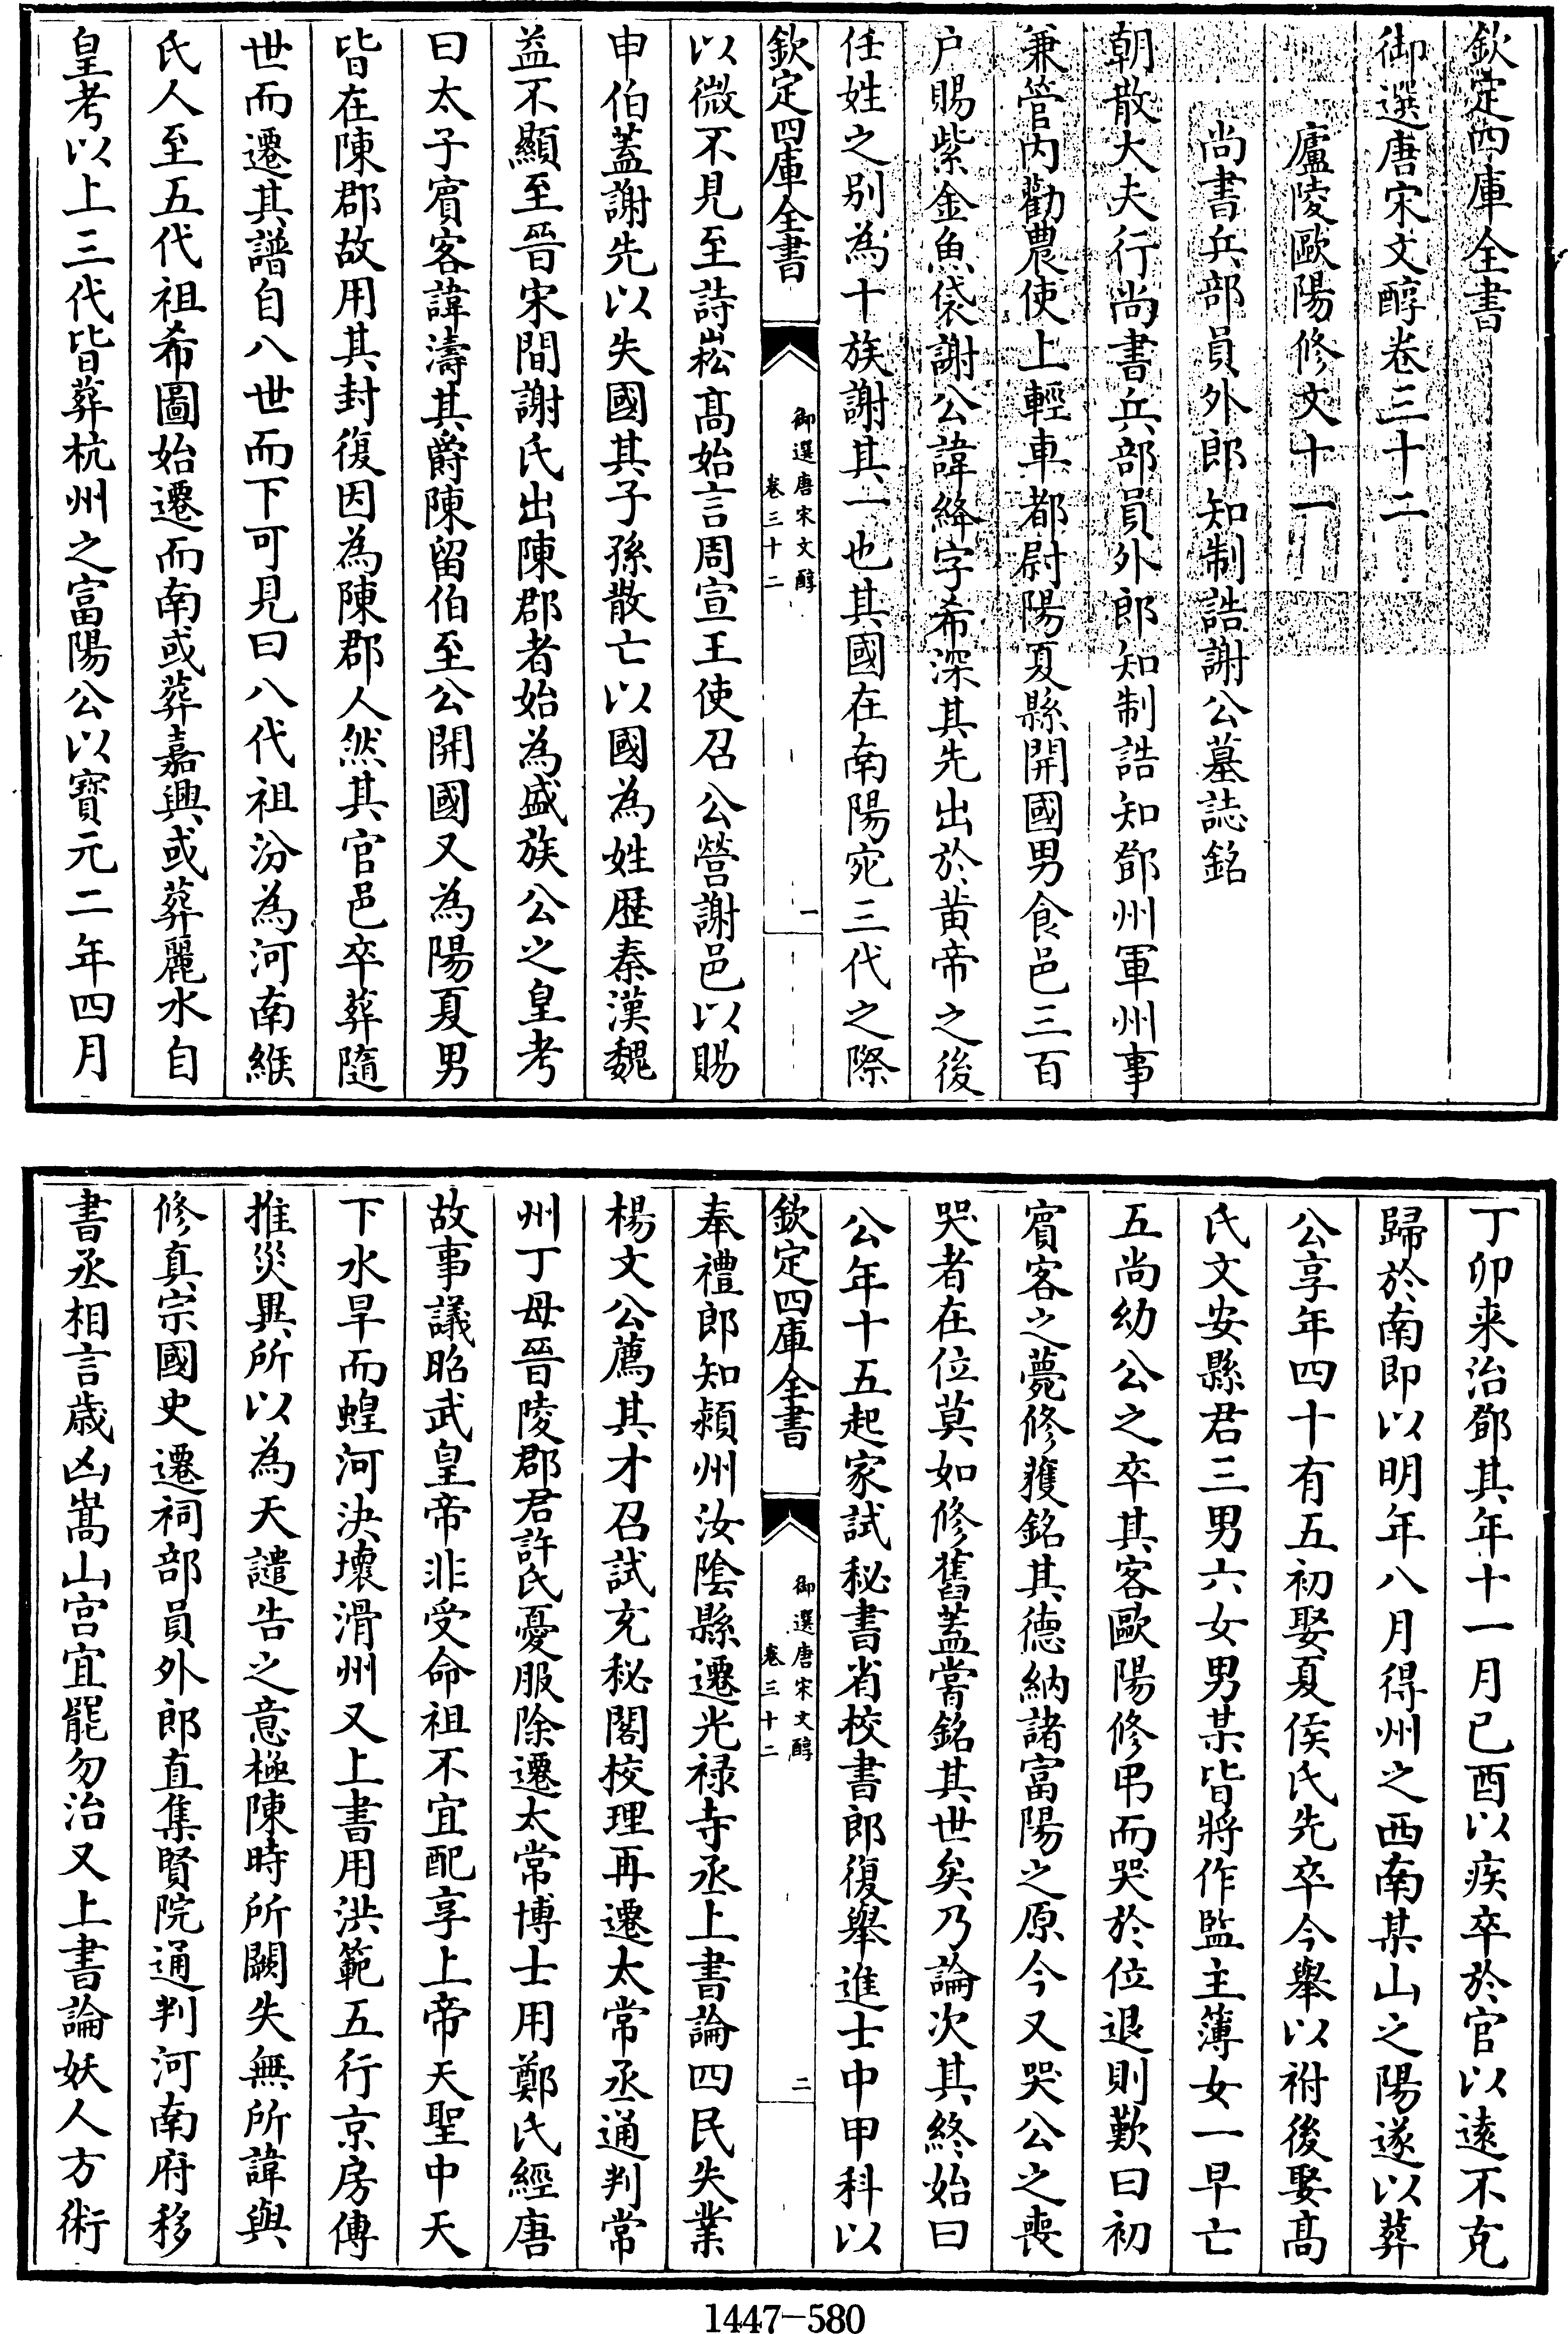 欽定四庫全書
御選唐宋文醇卷三十二
廬陵歐陽修文十一
尚書兵部員外郎知制誥謝公墓誌銘
朝散大夫行尚書兵部員外郎知制誥知鄧州軍州事
兼管内勸農使上輕車都尉陽夏縣開國男食邑三百
户賜紫金魚袋謝公諱絳字希深其先出於黄帝之後
任姓之别為十族謝其一也其國在南陽宛三代之際
欽定四庫全書
御選唐宋文醇
卷三十二
一
以微不見至詩崧髙始言周宣王使召公營謝邑以賜
申伯蓋謝先以失國其子孫散亡以國為姓歴秦漢魏
益不顯至晉宋間謝氏出陳郡者始為盛族公之皇考
曰太子賓客諱濤其爵陳留伯至公開國又為陽夏男
皆在陳郡故用其封復因為陳郡人然其官邑卒葬隨
世而遷其譜自八世而下可見曰八代祖汾為河南緱
氏人至五代祖希圖始遷而南或葬嘉興或葬麗水自
皇考以上三代皆葬杭州之富陽公以寳元二年四月
丁卯来治鄧其年十一月已酉以疾卒於官以逺不克
歸於南即以明年八月得州之西南某山之陽遂以葬
公享年四十有五初娶夏侯氏先卒今舉以祔後娶髙
氏文安縣君三男六女男某皆將作監主簿女一早亡
五尚幼公之卒其客歐陽修弔而哭於位退則歎曰初
賓客之薨修獲銘其德納諸富陽之原今又哭公之喪
哭者在位莫如修舊蓋嘗銘其世矣乃論次其終始曰
公年十五起家試秘書省校書郎復舉進士中甲科以
欽定四庫全書
御選唐宋文醇
卷三十二
二
奉禮郎知潁州汝陰縣遷光禄寺丞上書論四民失業
楊文公薦其才召試充秘閣校理再遷太常丞通判常
州丁母晉陵郡君許氏憂服除遷太常博士用鄭氏經唐
故事議昭武皇帝非受命祖不宜配享上帝天聖中天
下水旱而蝗河決壞滑州又上書用洪範五行京房傳
推災異所以為天譴告之意極陳時所闕失無所諱與
修真宗國史遷祠部員外郎直集賢院通判河南府移
書丞相言歲凶嵩山宫宜罷勿治又上書論妖人方術
1447-580